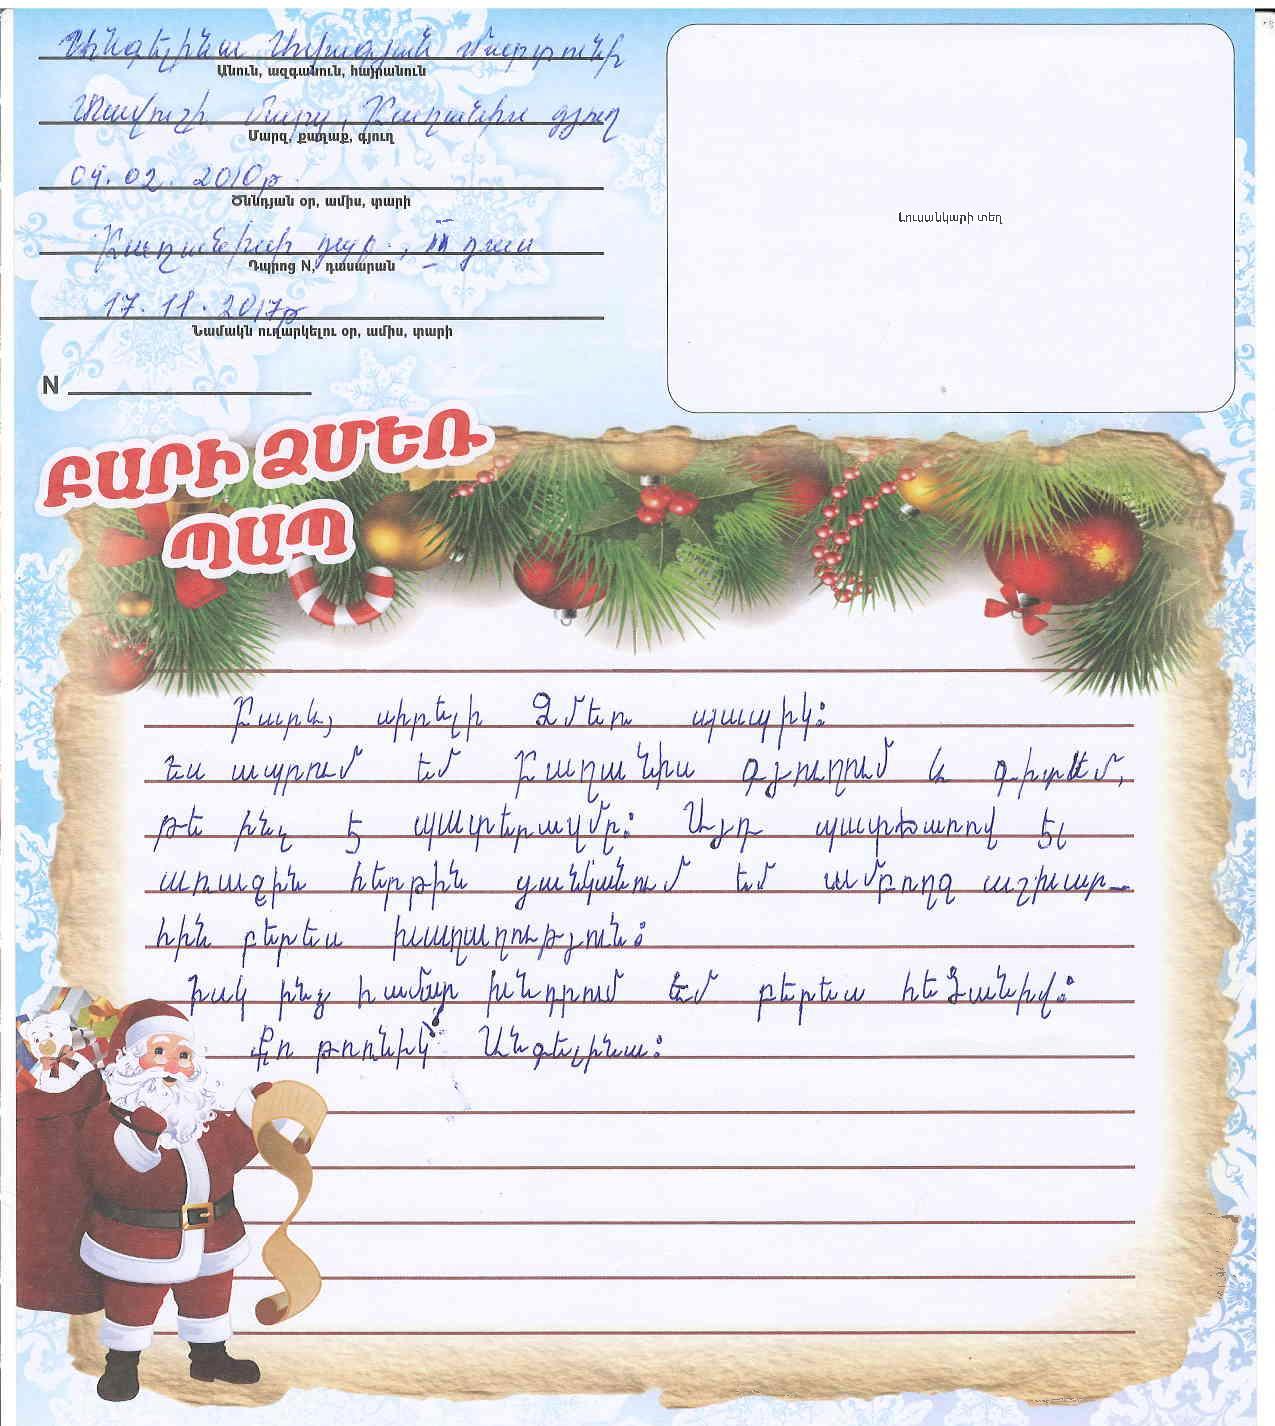 Անգելինա Ամիրագյան Մարտունի
Անուն, ազգանուն, հայրանուն
Տավուշի մարզ, Բաղանիս գյուղ
Մարզ, քաղաք, գյուղ
04. 02. 2010թ.
Ծննդյան օր, ամիս, տարի
Բաղանիսի դպր., II դաս
Դպրոց N, դասարան
17. 11. 2017թ
Նամակն ուղարկելու օր, ամիս, տարի
N
Լուսանկարի տեղ
ԲԱՐԻ ՁՄԵՌ
ՊԱՊ
Բարև, սիրելի Ձմեռ պապիկ:
Ես ապրում եմ Բաղանիս գյուղում և գիտեմ,
թե ինչ է պատերազմը: Այդ պատճառով էլ
առաջին հերթին ցանկանում եմ ամբողջ աշխար-
հին բերես խաղաղություն:
Իսկ ինձ համար խնդրում եմ բերես հեծանիվ:
Քո թոռնիկ՝ Անգելինա: